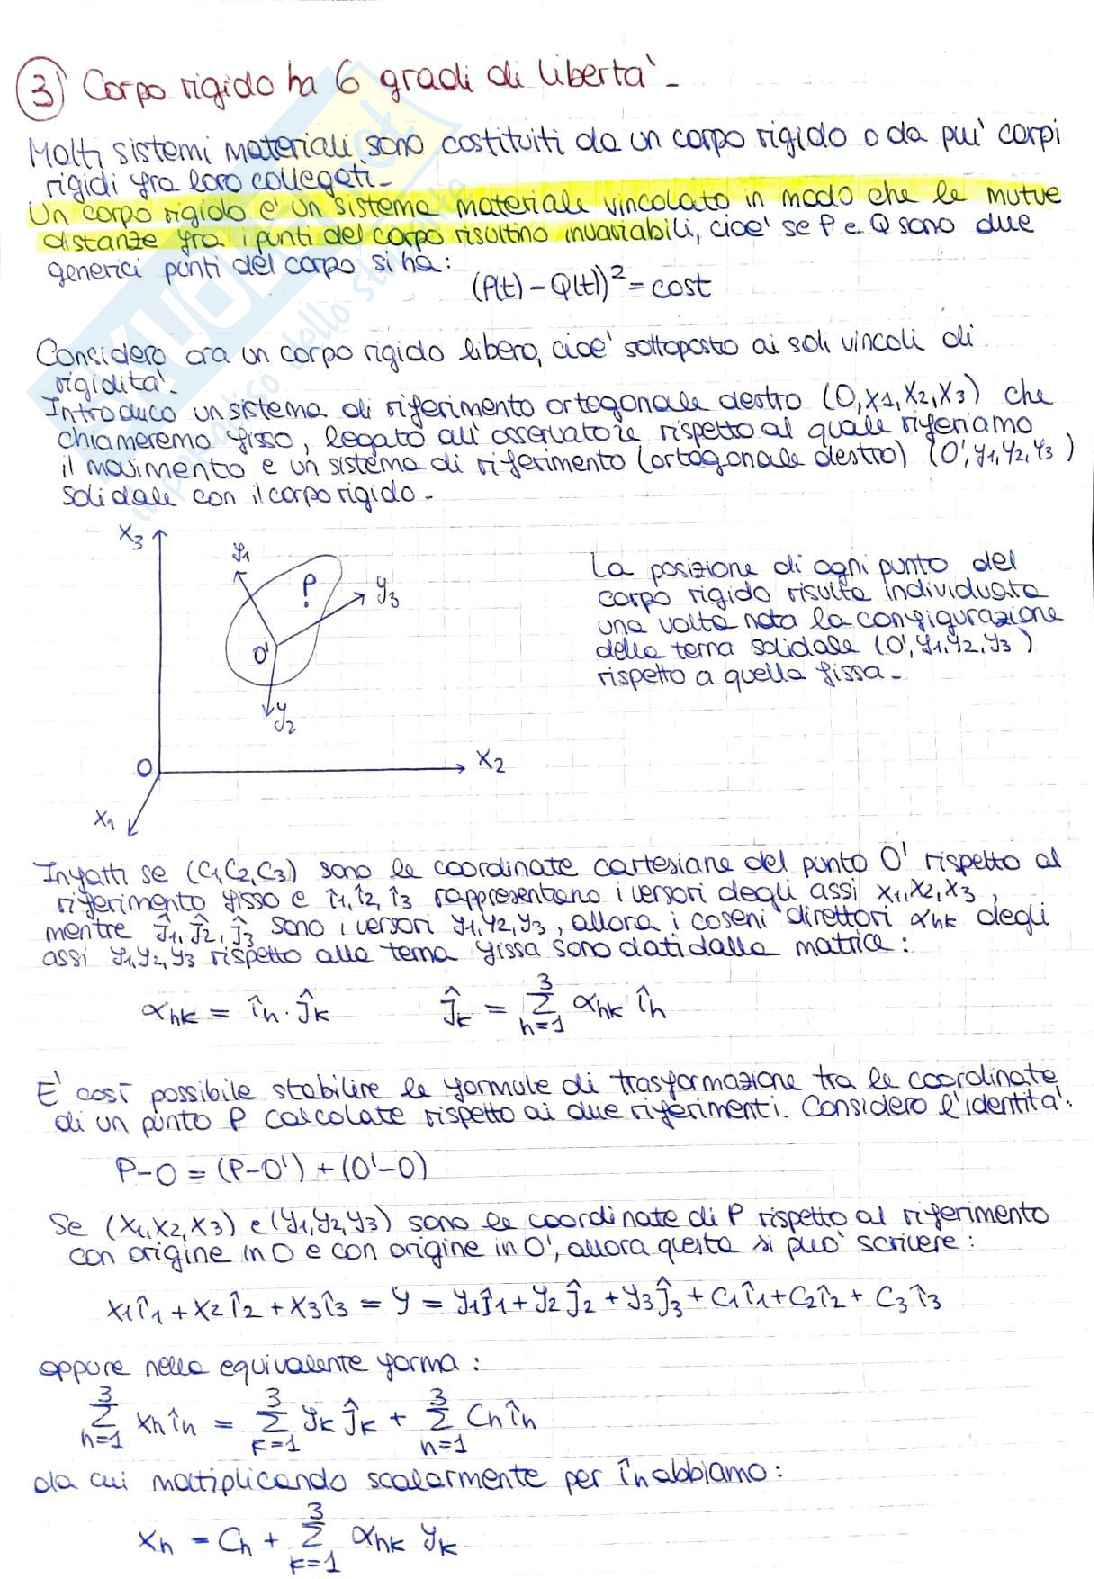 ③ Corpo rigido ha 6 gradi di liberta' -
Molti sistemi materiali sono costituiti da un corpo rigido o da pui' corpi
rigidi fra loro collegati -
Un corpo rigido e' un sistema materiale vincolato in modo che le mutue
distanze fra i punti del corpo risultino invariabili, cioe' se P e Q sono due
generici punti del corpo si ha:
(P(t) - Q(t))² = cost
Considero ora un corpo rigido libero, cioe' sottoposto ai soli vincoli di
rigidita'.
Introduco un sistema di riferimento ortogonale destro (O, x₁, x₂, x₃) che
chiameremo fisso, legato all'osservatore rispetto al quale riferiamo
il movimento e un sistema di riferimento (ortogonale destro) (O', y₁, y₂, y₃)
solidale con il corpo rigido -
x₃
y₁
P
y₃
O'
y₂
O
x₂
x₁
La posizione di ogni punto del
corpo rigido risulta individuata
una volta nota la configurazione
della terna solidale (O', y₁, y₂, y₃)
rispetto a quella fissa -
Infatti se (c₁, c₂, c₃) sono le coordinate cartesiane del punto O' rispetto al
riferimento fisso e î₁, î₂, î₃ rappresentano i versori degli assi x₁, x₂, x₃,
mentre ĵ₁, ĵ₂, ĵ₃ sono i versori y₁, y₂, y₃, allora i coseni direttori αhk degli
assi y₁, y₂, y₃ rispetto alla terna fissa sono dati dalla matrice:
αhk = îh · ĵk    ĵk = Σ(h=1..3) αhk îh
E' così possibile stabilire le formule di trasformazione tra le coordinate
di un punto P calcolate rispetto ai due riferimenti. Considero l'identita':
P - O = (P - O') + (O' - O)
Se (x₁, x₂, x₃) e (y₁, y₂, y₃) sono le coordinate di P rispetto al riferimento
con origine in O e con origine in O', allora questa si puo' scrivere:
x₁î₁ + x₂î₂ + x₃î₃ = y = y₁ĵ₁ + y₂ĵ₂ + y₃ĵ₃ + c₁î₁ + c₂î₂ + c₃î₃
oppure nella equivalente forma:
Σ(h=1..3) xh îh = Σ(k=1..3) yk ĵk + Σ(h=1..3) Ch îh
da cui moltiplicando scalarmente per îh abbiamo:
xh = Ch + Σ(k=1..3) αhk yk